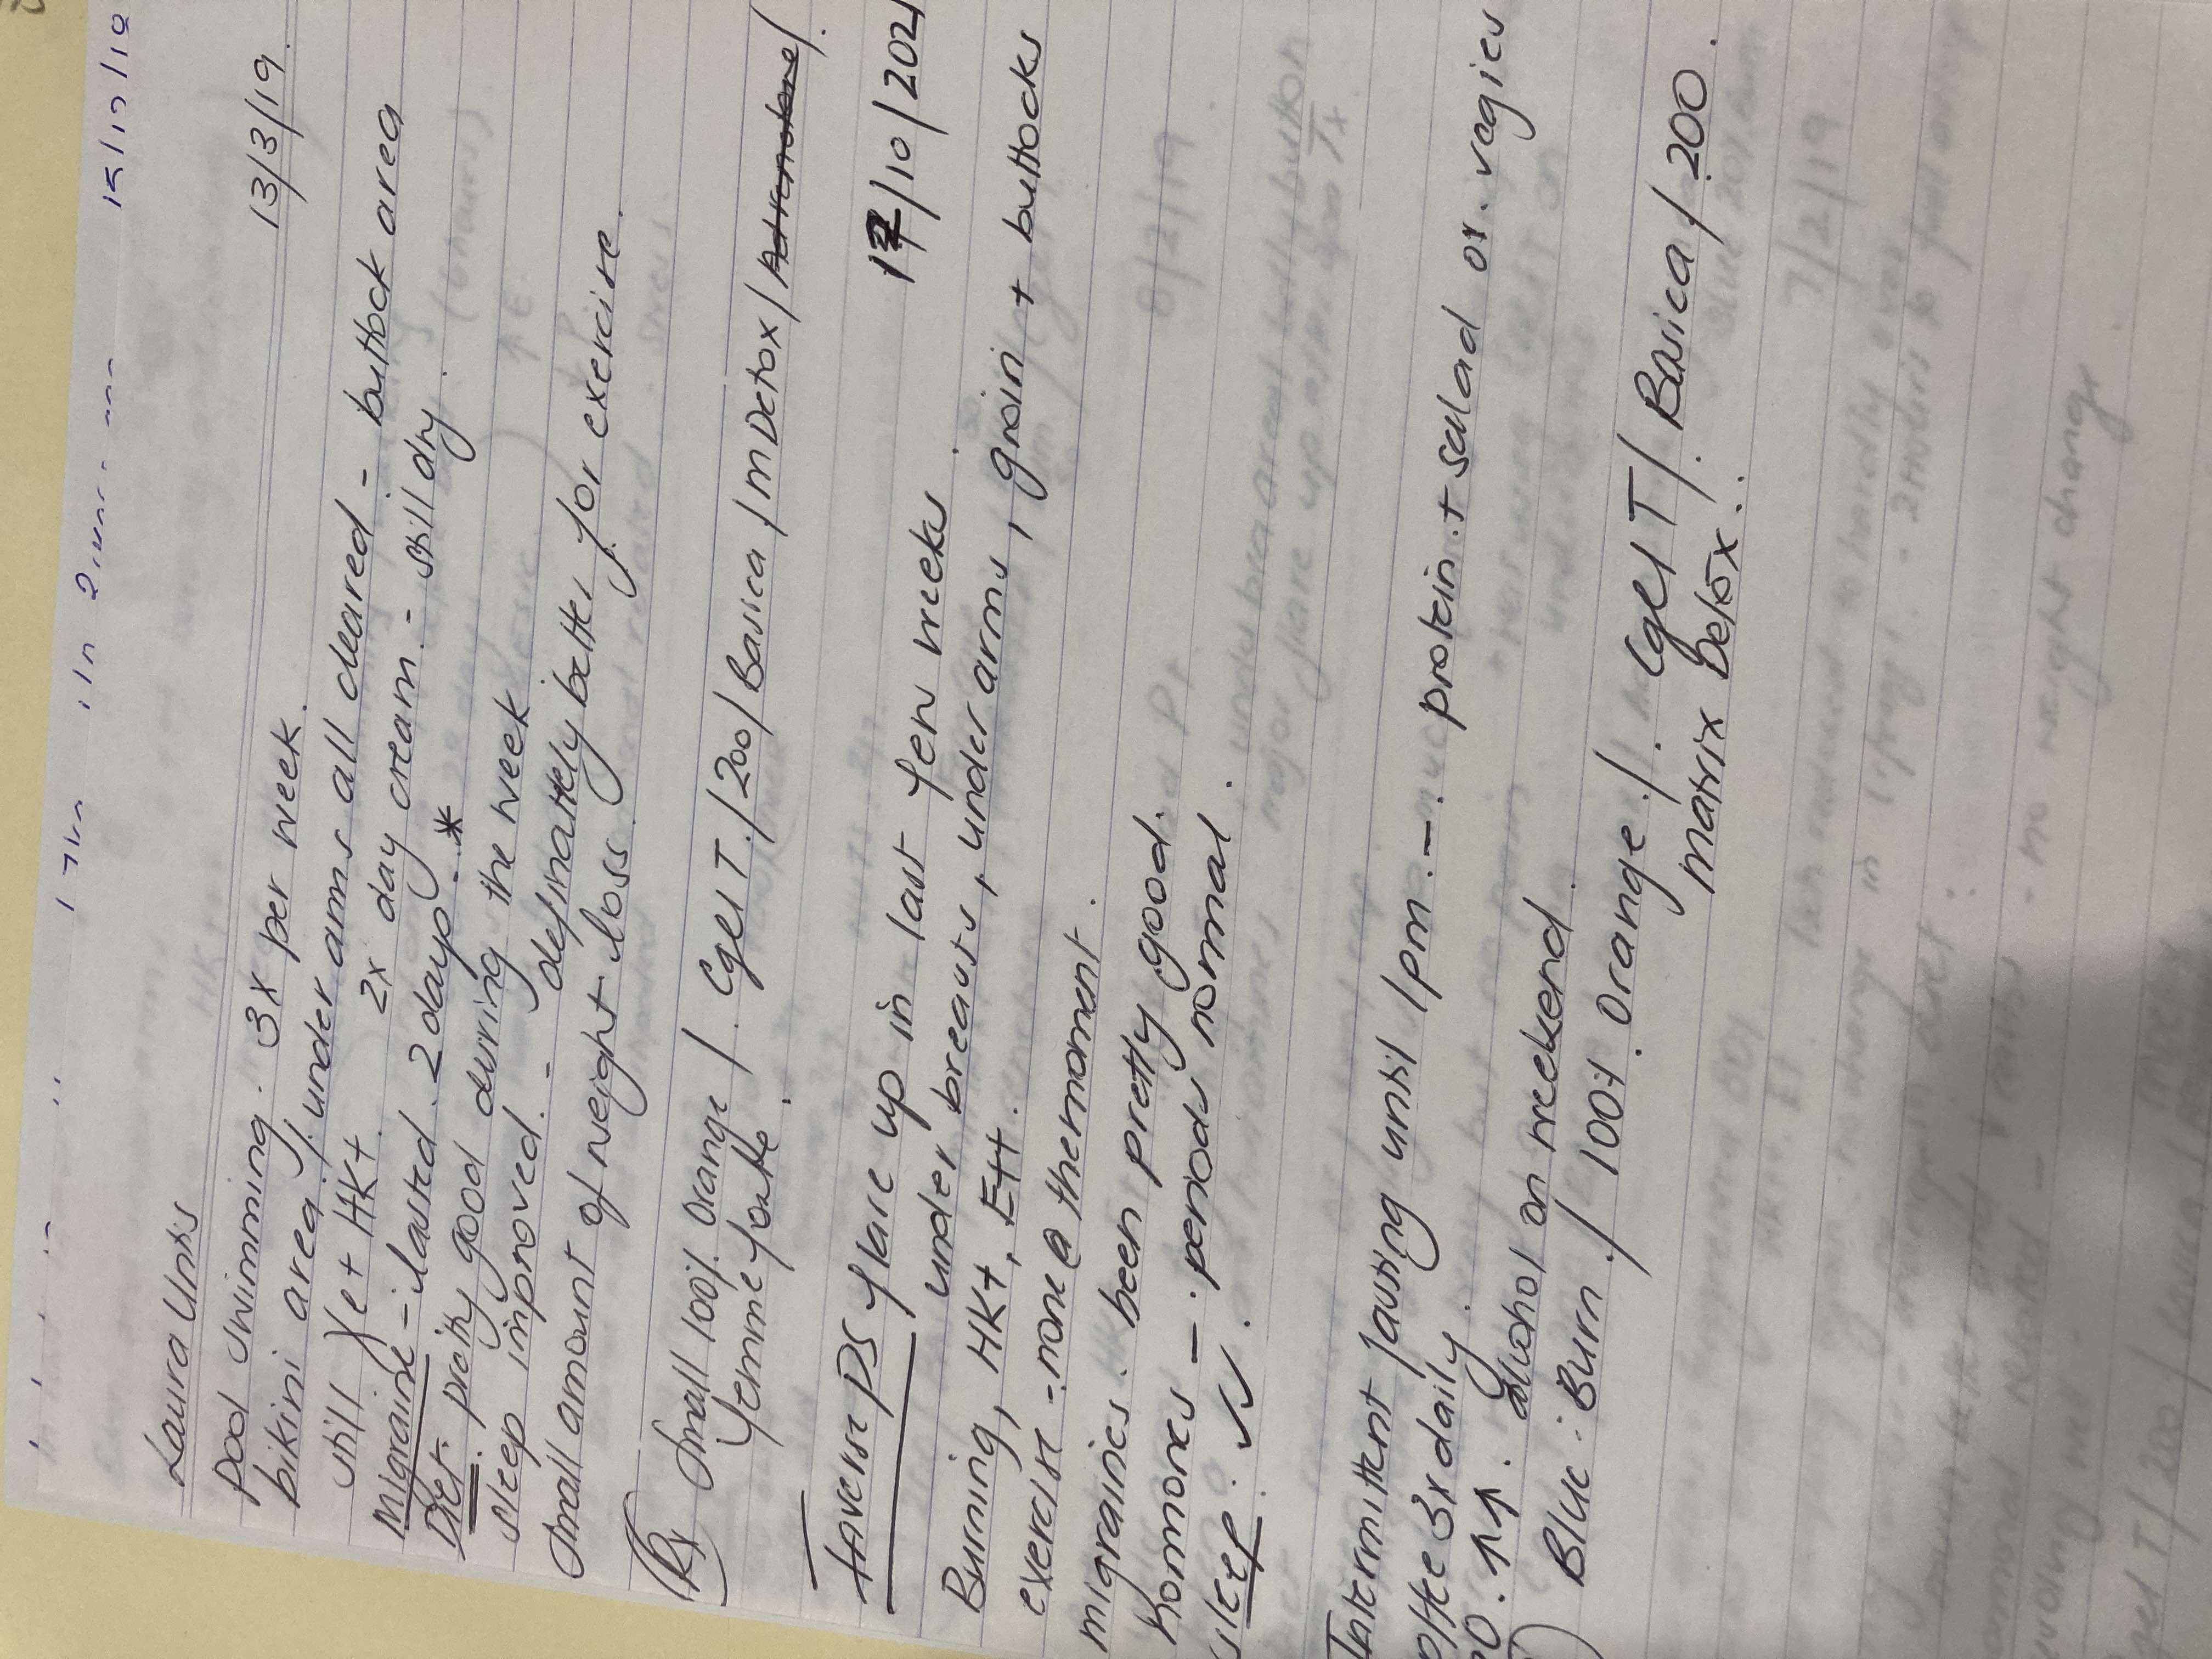 Laura Unsis 13/3/19.
pool swimming. 3x per week.
bikini area / under arms all cleared - buttock area
still Jet HKt. 2x day cream. - still dry.
Migraine - lasted 2 days. *
Diet: pretty good during the week
sleep improved. - definattely better for exercise.
small amount of weight loss.
Rx Small 100% Orange / Cgel T. / 200 / Basica / mDetox /
femme forte.
Inverse PS flare up in last few weeks. 17/10/2021
under breasts, under arms, groin + buttocks
Burning, HKt, Ett.
exercise - none @ the moment.
migraines. been pretty good.
Homones - periods normal.
sleep. ✓✓.
Intermittent fasting until 1pm. - protein + salad or vegies
3x daily.
H2O. ↑↑. alcohol on weekend.
Blue: Burn / 100% Orange / Cgel T / Basica / 200.
matrix Detox.